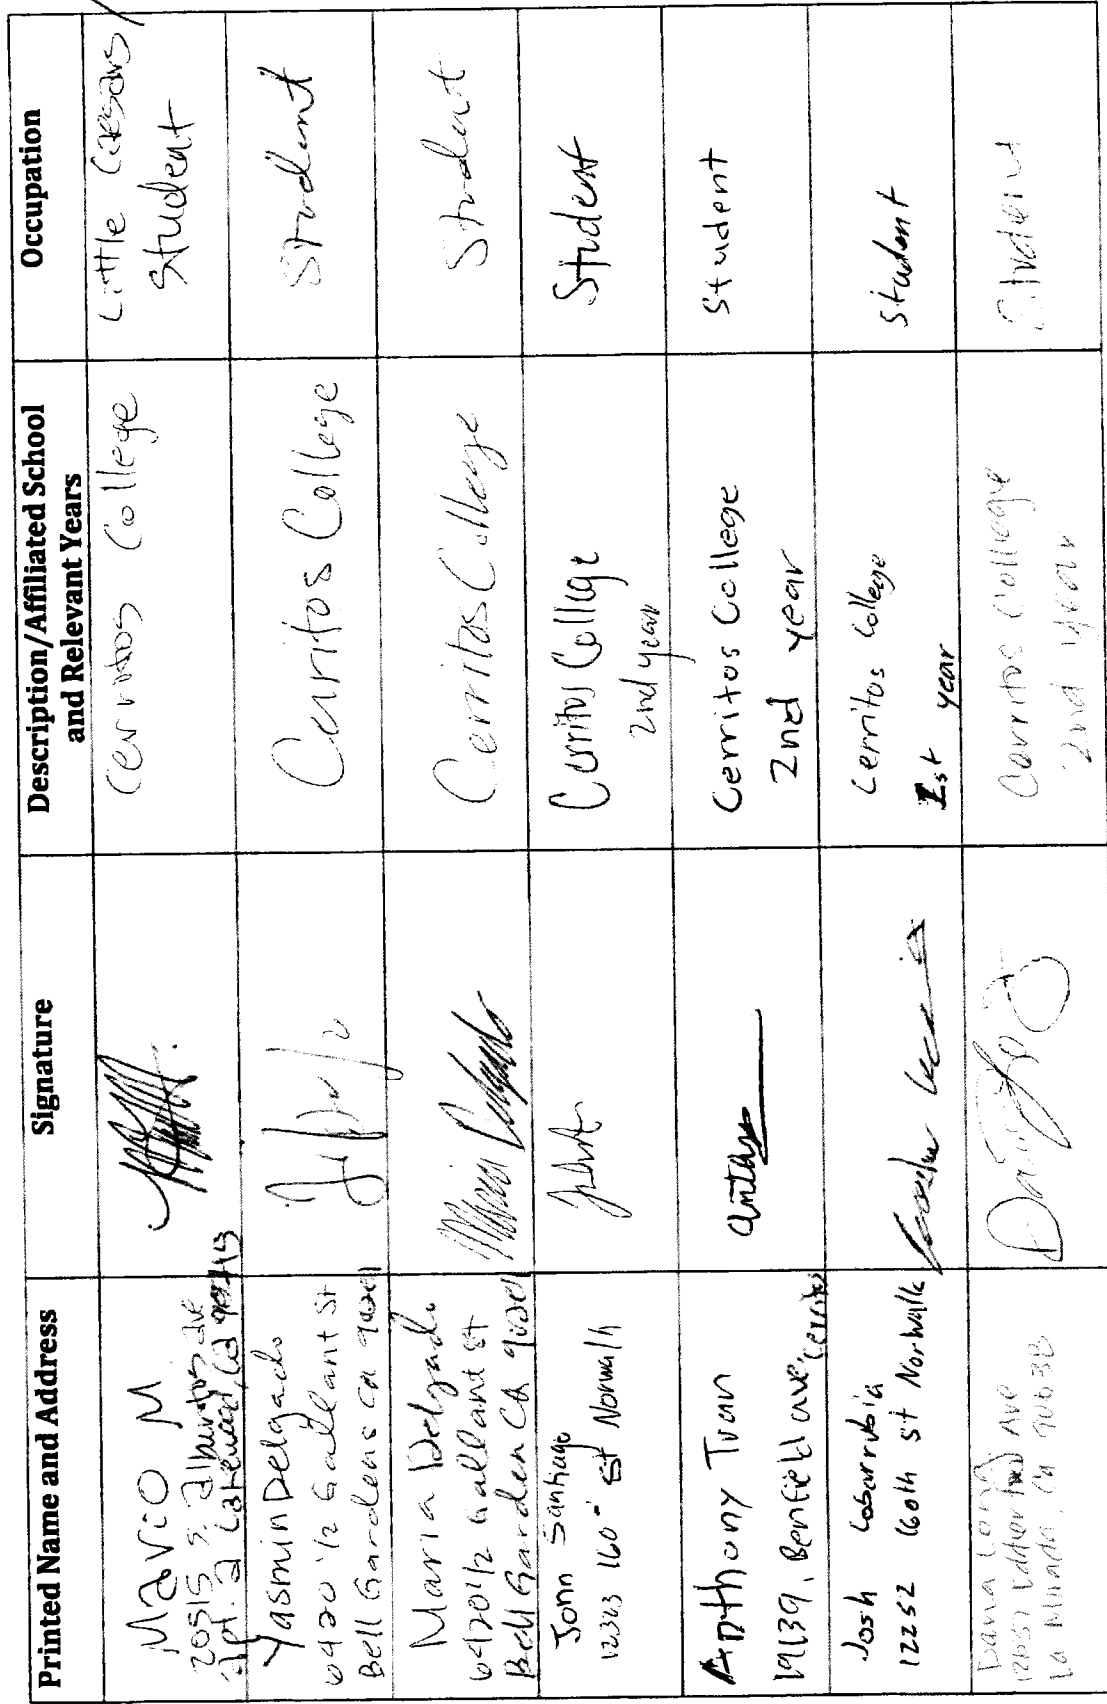 Printed Name and Address
Signature
Description/Affiliated School
and Relevant Years
Occupation
Mario M
20515 S.
apt. 2 Lakewood, Ca
Cerritos College
Little Caesars/
Student
Yasmin Delgado
6420 1/2 Gallant St
Bell Gardens Ca 90201
Cerritos College
Student
Maria Delgado
6420 1/2 Gallant st
Bell Garden CA 90201
Maria Delgado
Cerritos College
Student
John Santiago
12323 160th St Norwalk
Cerritos College
2nd year
Student
Anthony Tran
19139, Benfield ave, Cerritos
Cerritos College
2nd year
Student
Josh Cosarrubia
12252 160th St Norwalk
Cerritos College
1st year
Student
Dana Long
Ave
La Mirada, Ca 90638
Cerritos College
2nd year
Student